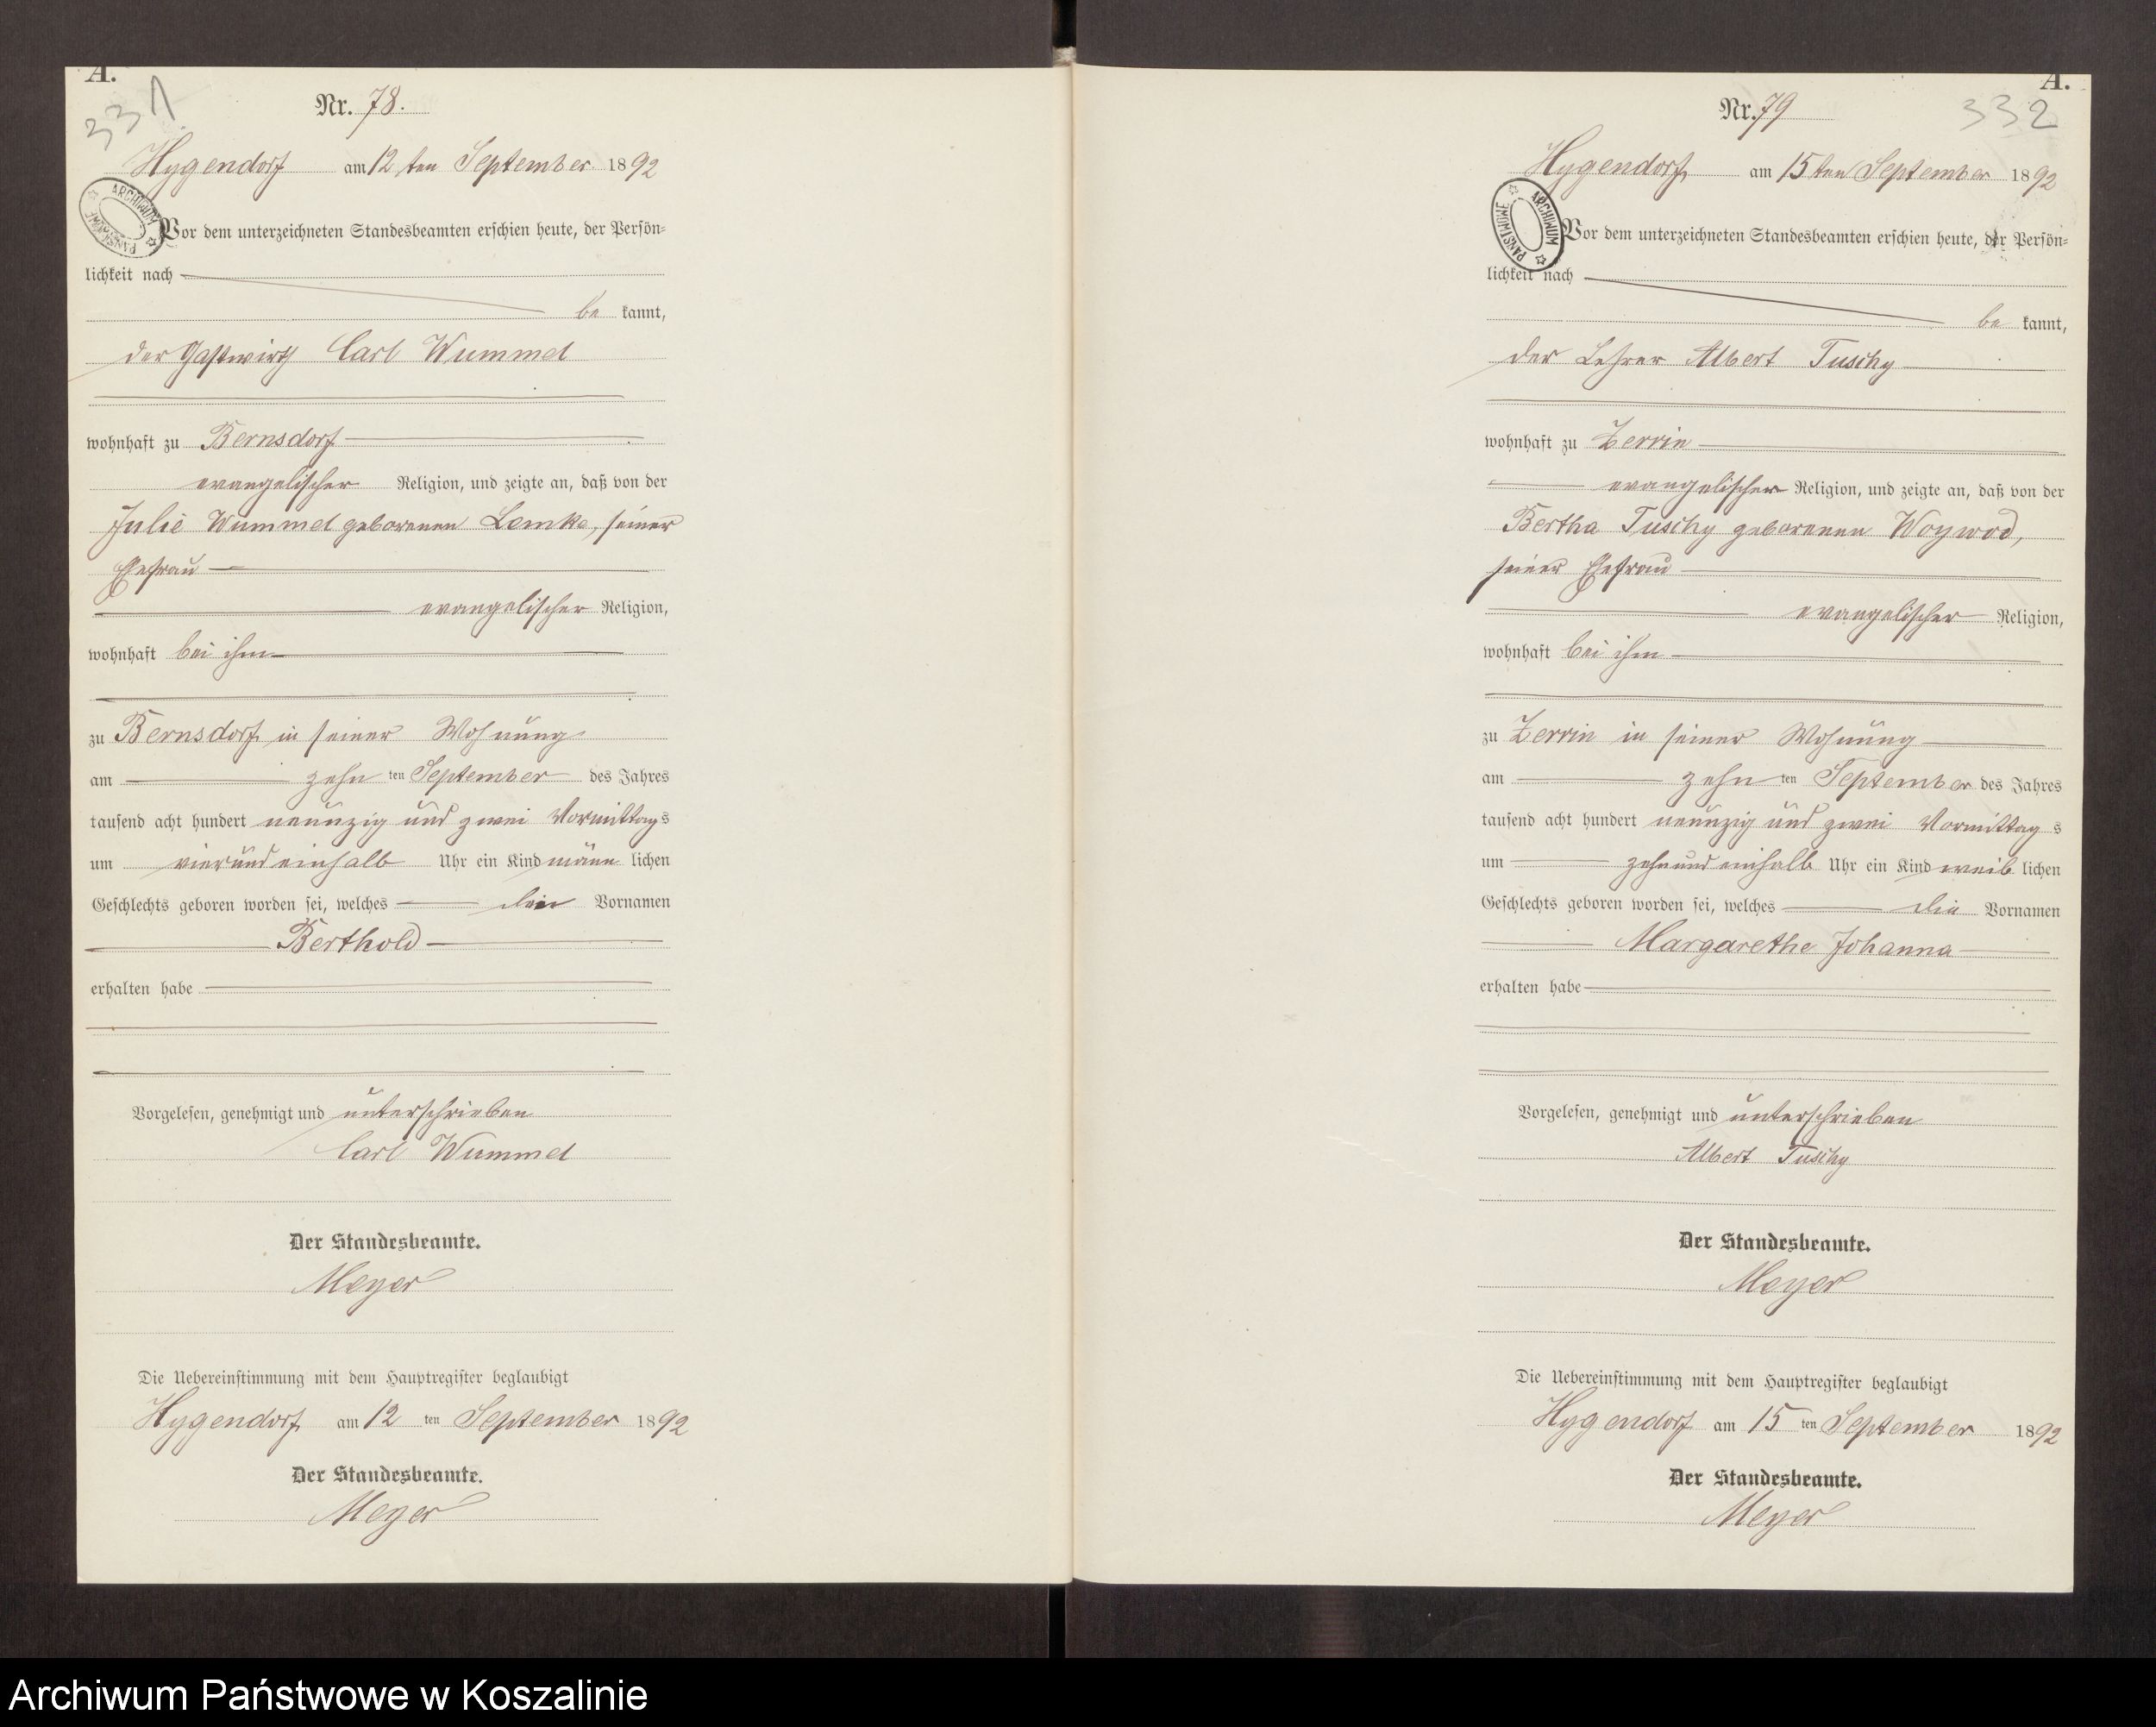 A.
331
Nr. 78.
Hygendorf am 12 ten September 1892
ARCHIWUM PAŃSTWOWE
Vor dem unterzeichneten Standesbeamten erschien heute, der Persön=
lichkeit nach
be kannt,
der Gastwirth Carl Wummel
wohnhaft zu Bernsdorf
evangelischer Religion, und zeigte an, daß von der
Julie Wummel geborenen Lemke, seiner
Ehefrau
evangelischer Religion,
wohnhaft bei ihm
zu Bernsdorf in seiner Wohnung
am zehn ten September des Jahres
tausend acht hundert neunzig und zwei Vormittags
um vierundeinhalb Uhr ein Kind männ lichen
Geschlechts geboren worden sei, welches den Vornamen
Berthold
erhalten habe
Vorgelesen, genehmigt und unterschrieben
Carl Wummel
Der Standesbeamte.
Meyer
Die Uebereinstimmung mit dem Hauptregister beglaubigt
Hygendorf am 12 ten September 1892
Der Standesbeamte.
Meyer
A.
332
Nr. 79
Hygendorf am 15 ten September 1892
ARCHIWUM PAŃSTWOWE
Vor dem unterzeichneten Standesbeamten erschien heute, der Persön=
lichkeit nach
be kannt,
der Lehrer Albert Tuschy
wohnhaft zu Zerrin
evangelischer Religion, und zeigte an, daß von der
Bertha Tuschy geborenen Woywod,
seiner Ehefrau
evangelischer Religion,
wohnhaft bei ihm
zu Zerrin in seiner Wohnung
am zehn ten September des Jahres
tausend acht hundert neunzig und zwei Vormittag s
um zehnundeinhalb Uhr ein Kind weib lichen
Geschlechts geboren worden sei, welches die Vornamen
Margarethe Johanna
erhalten habe
Vorgelesen, genehmigt und unterschrieben
Albert Tuschy
Der Standesbeamte.
Meyer
Die Uebereinstimmung mit dem Hauptregister beglaubigt
Hygendorf am 15 ten September 1892
Der Standesbeamte.
Meyer
Archiwum Państwowe w Koszalinie